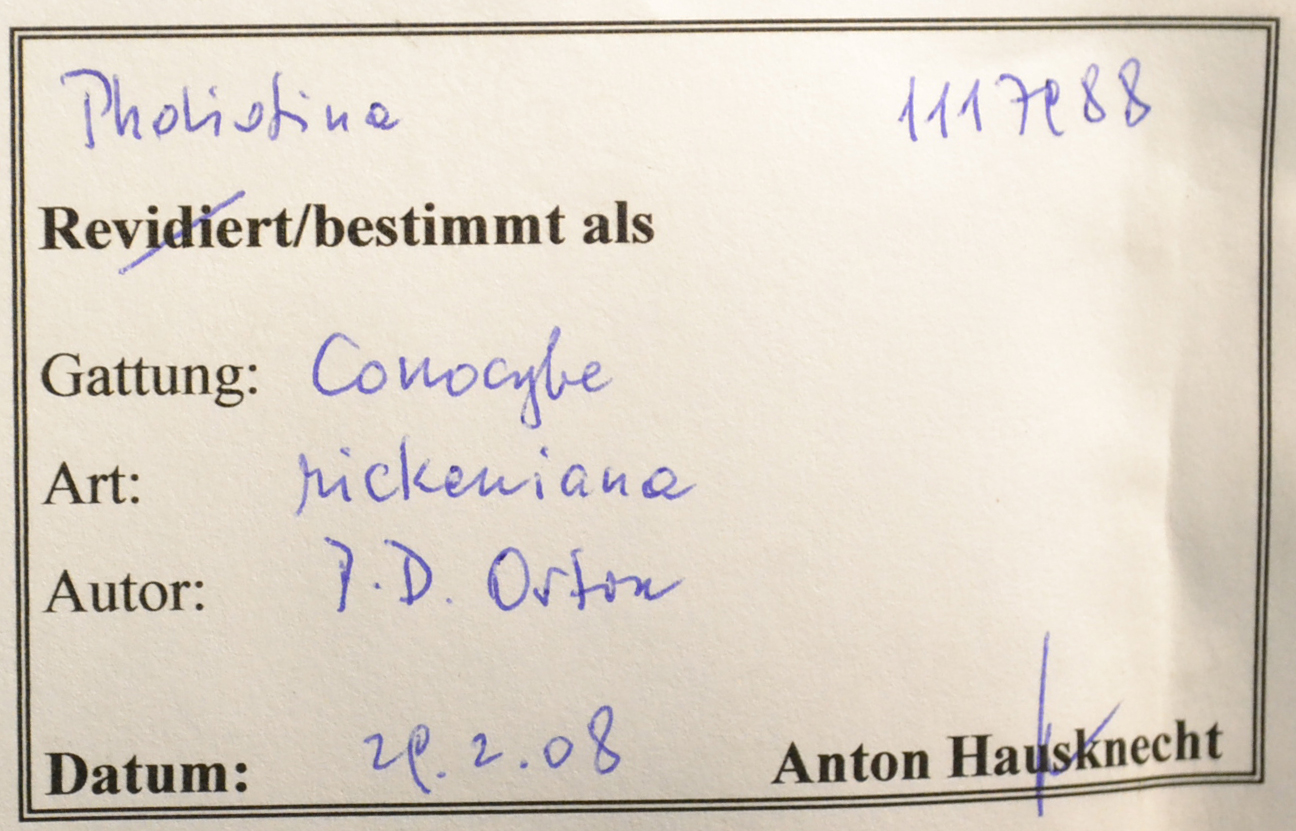 Pholiotina 1117988
Revidiert/bestimmt als
Gattung: Conocybe
Art: rickeniana
Autor: P.D. Orton
Datum: 29.2.08 Anton Hausknecht